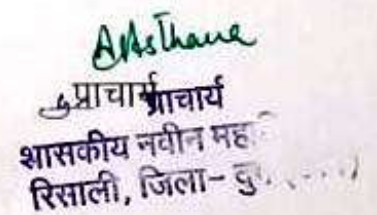 AAsthana
प्राचार्य प्राचार्य
शासकीय नवीन
रिसाली, जिला-